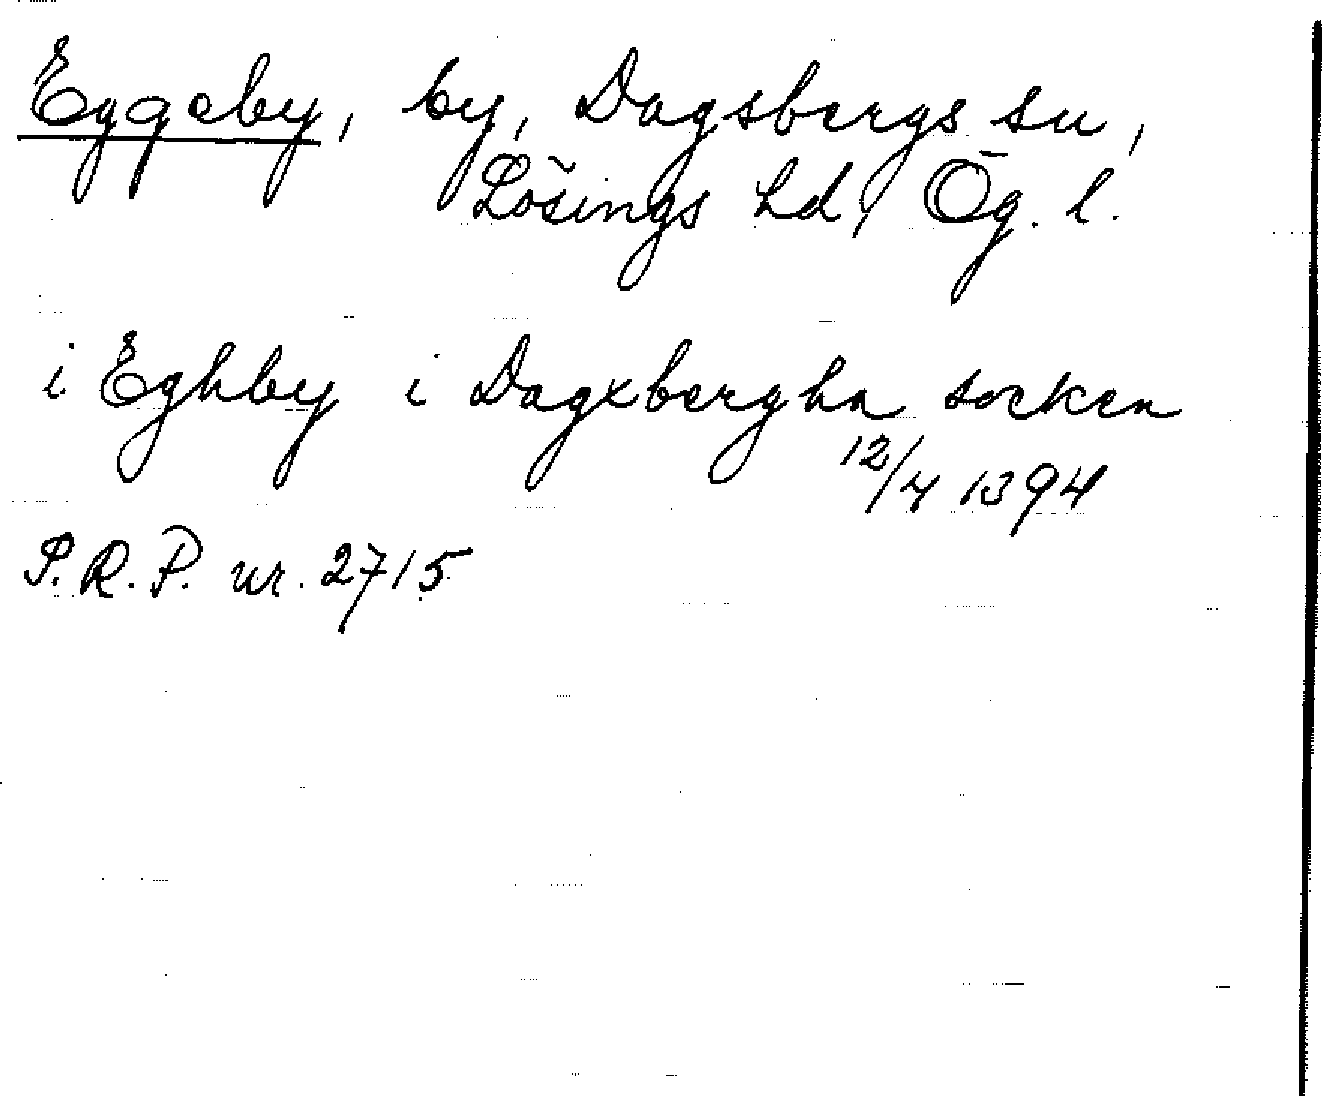 Eggeby, by, Dagsbergs sn,
Lösings hd, Ög. l.
i Eghby i Dagxbergha socken
12/4 1394
P.R.P. nr. 2715